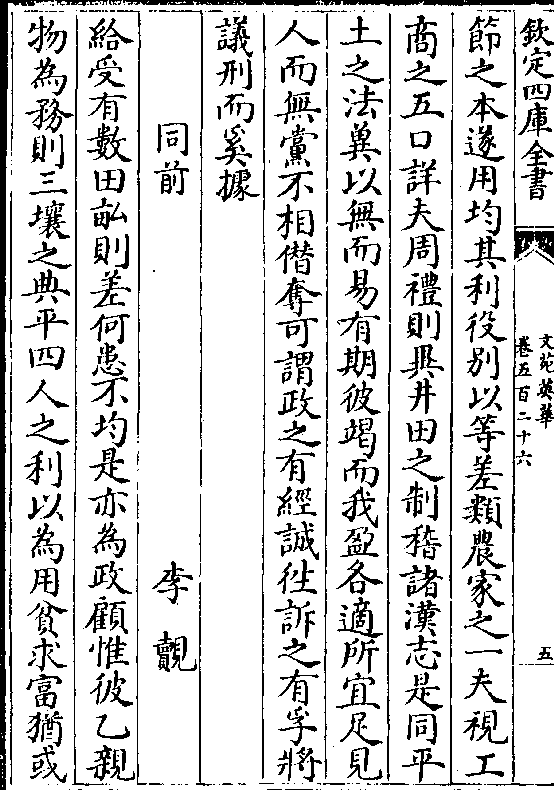 欽定四庫全書
文苑英華
卷五百二十六
五
節之本遂用均其利役別以等差類農家之一夫視工
商之五口詳夫周禮則異井田之制稽諸漢志是同平
土之法冀以無而易有期彼竭而我盈各適所宜足見
人而無黨不相僭奪可謂政之有經誠徃訴之有孚將
議刑而奚據
同前
李覿
給受有數田畝則差何患不均是亦為政顧惟彼乙親
物為務則三壤之典平四人之利以為用貧求富猶或